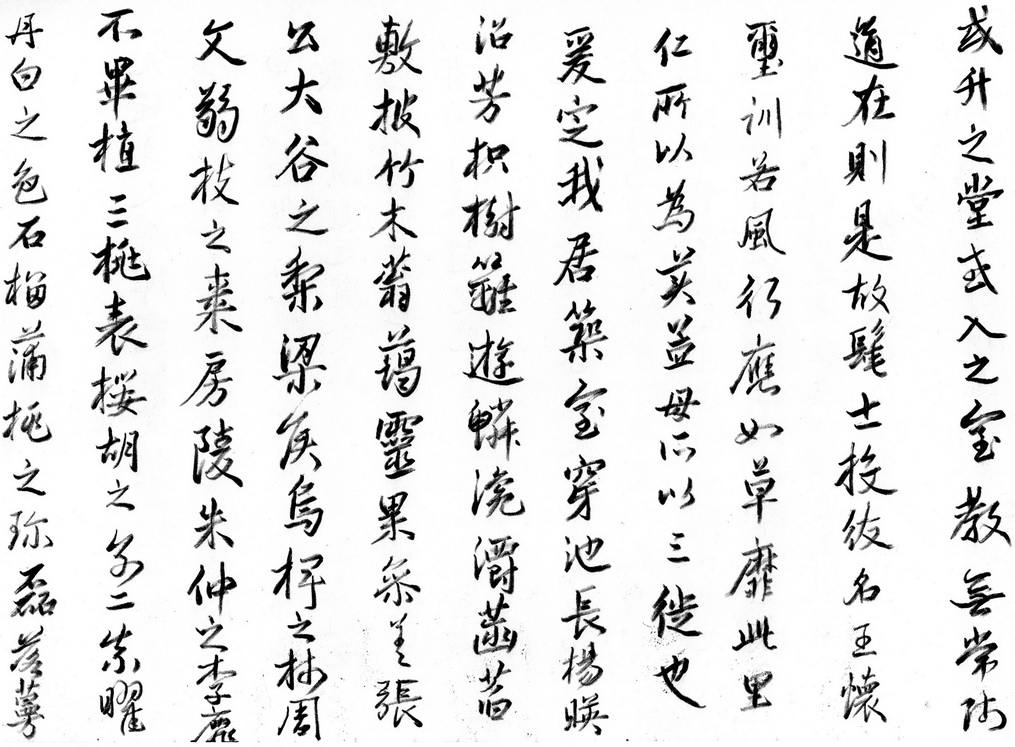 或升之堂或入之室教無常師
道在則是故髦士投紱名王懷
璽訓若風行應如草靡此里
仁所以為美孟母所以三徙也
爰定我居築室穿池長楊映
沼芳枳樹籬遊鱗瀺灂菡萏
敷披竹木蓊藹靈果參差張
公大谷之梨梁侯烏椑之柿周
文弱枝之棗房陵朱仲之李靡
不畢植三桃表櫻胡之別二柰曜
丹白之色石榴蒲桃之珍磊落蔓